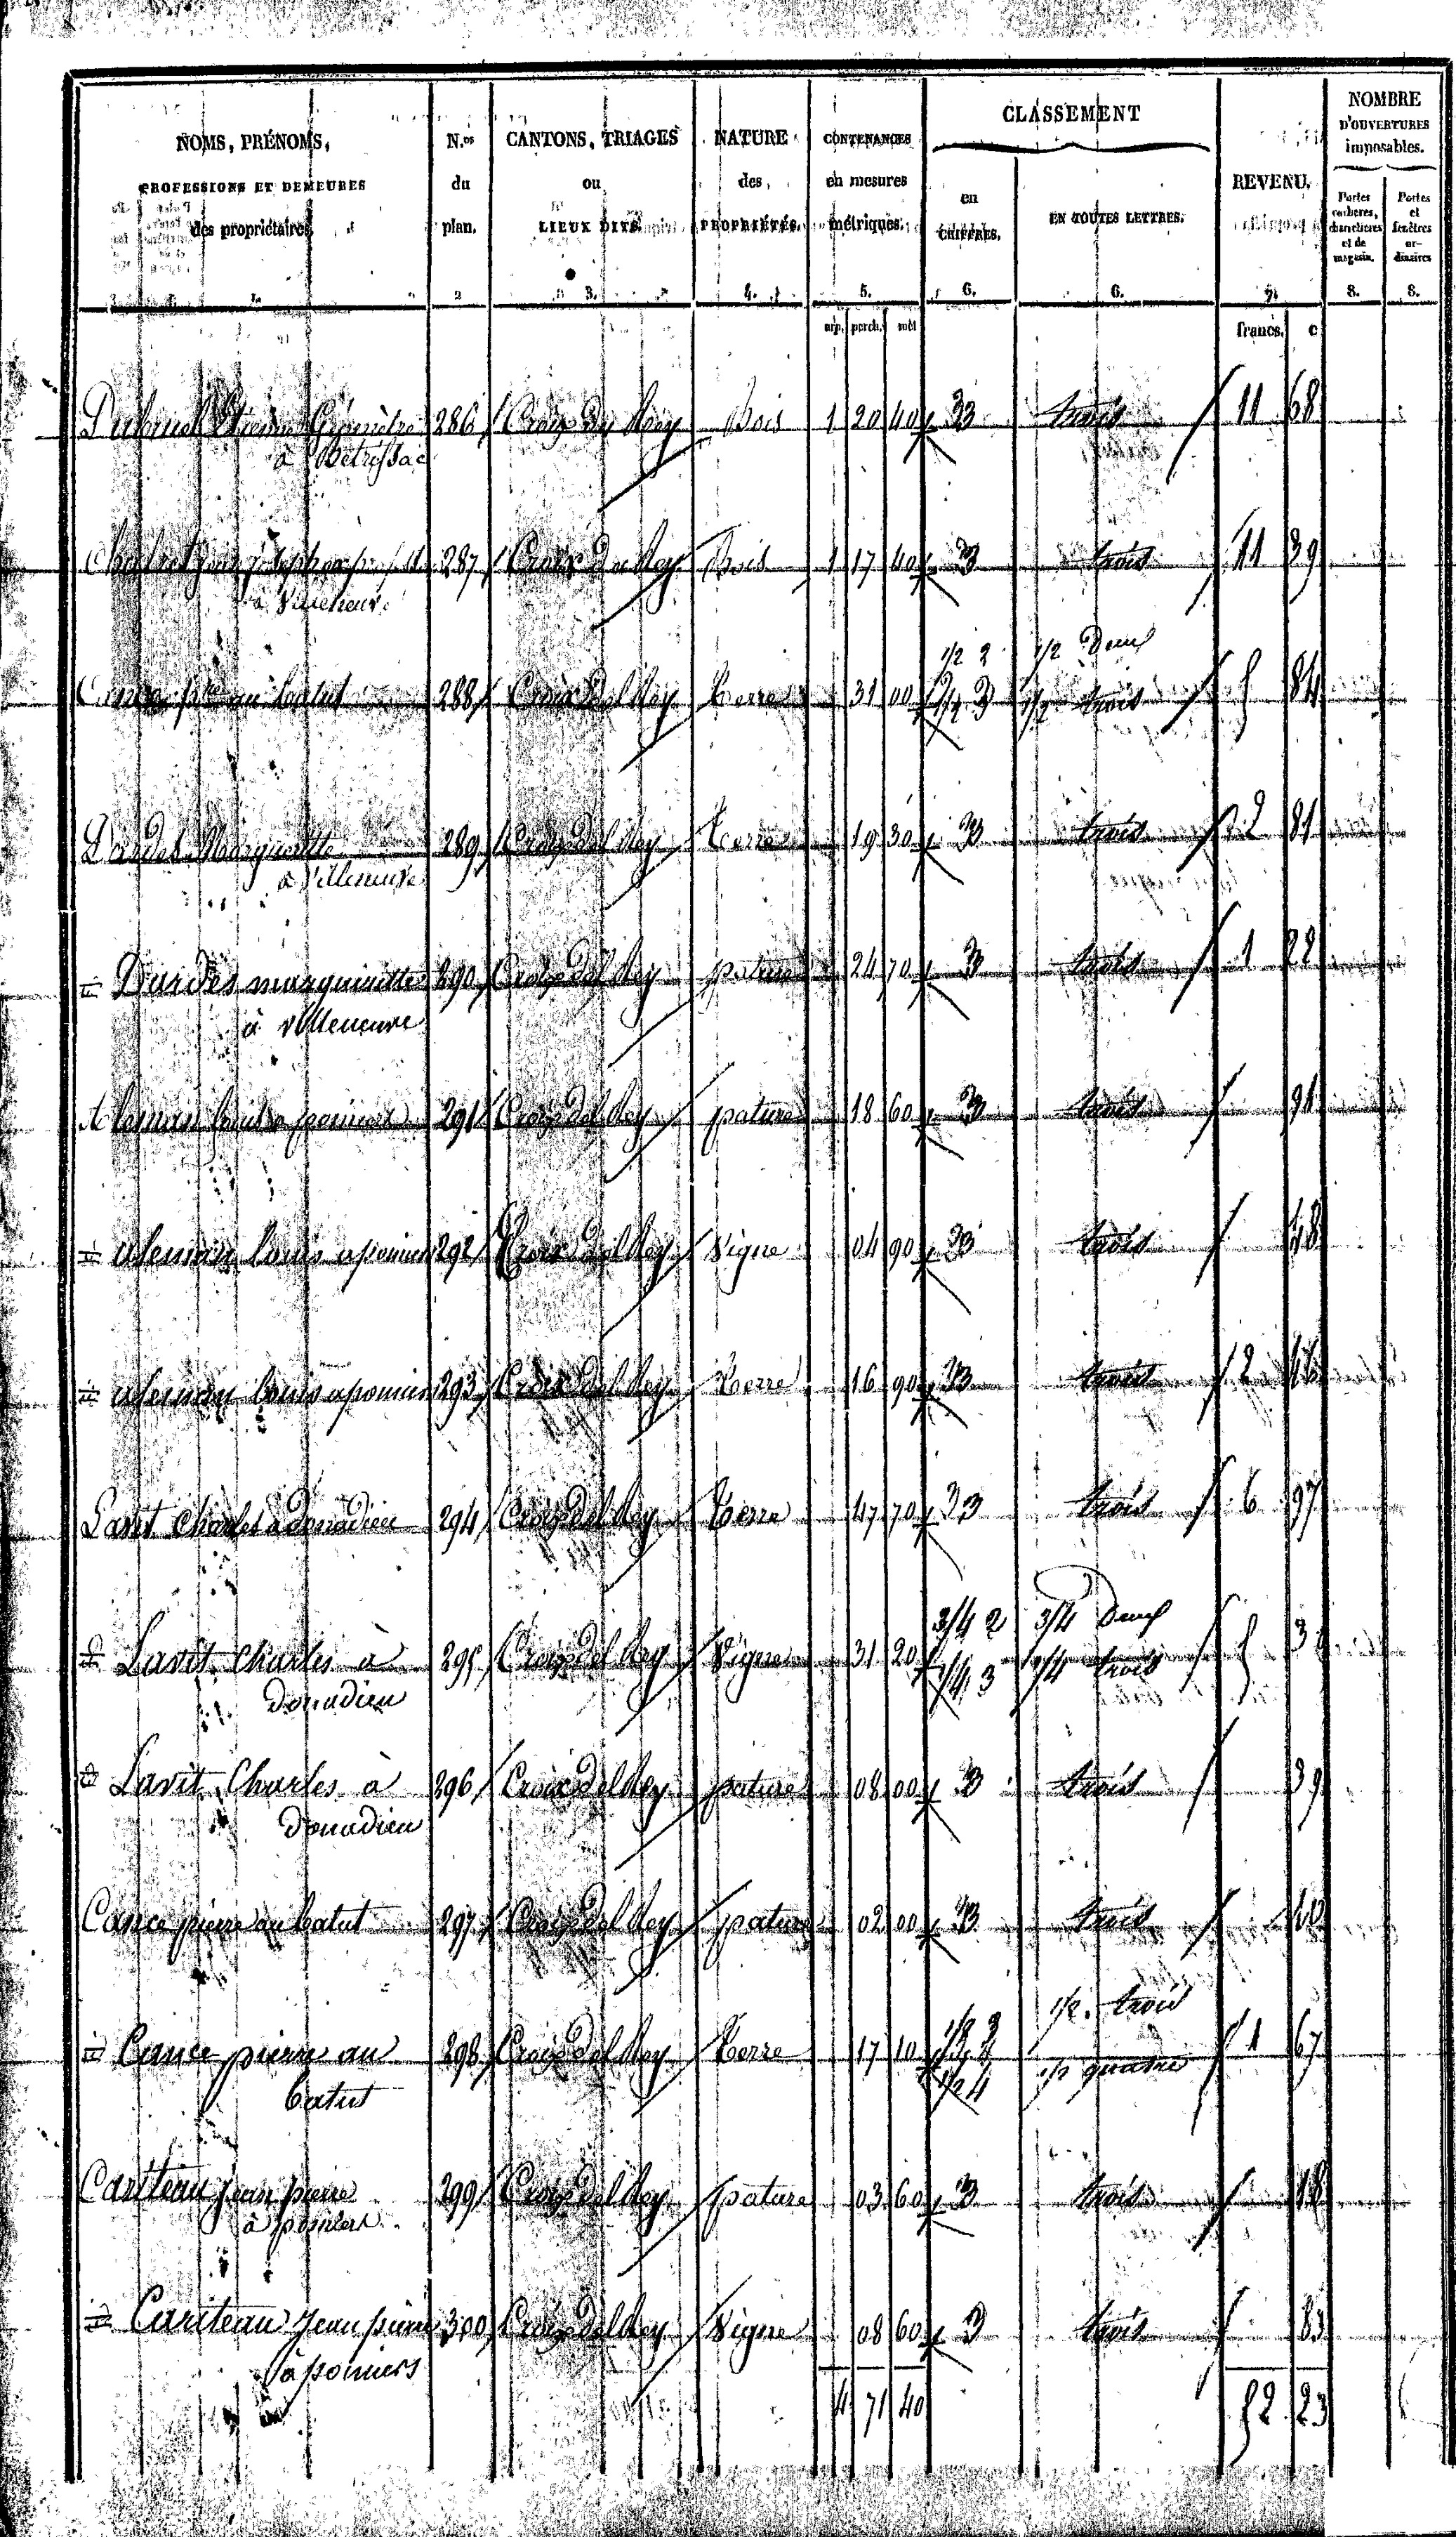 NOMS, PRÉNOMS, PROFESSIONS ET DEMEURES des propriétaires
N.os du plan.
CANTONS, TRIAGES ou LIEUX DITS.
NATURE des PROPRIÉTÉS.
CONTENANCES en mesures métriques.
CLASSEMENT
en CHIFFRES.
EN TOUTES LETTRES.
REVENU.
NOMBRE D'OUVERTURES imposables.
Portes cochères, charretières et de magasin.
Portes et fenêtres ordinaires
1. 2 3. 4. 5. 6. 6. 7. 8. 8.
arp. perch. mèt francs. c
286 Croix Bois 1 20 40 3 trois 11 68
à
287 Croix Bois 1 17 40 3 trois 11 39
à
1/2 2 1/2 Deux
Cance pre au batut 288 Croix Del Rey Terre 31 00 1/2 3 1/2 trois 5 84
Marguerite 289 Croix Del Rey Terre 19 30 3 trois 2 81
à Villeneuve
Dardes marguerite 290 Croix Del Rey pature 24 70 3 trois 1 22
à villeneuve
Aleman louis a pomiers 291 Croix Del Rey pature 18 60 3 trois 91
aleman louis a pomiers 292 Croix Del Rey Vigne 04 90 3 trois 48
aleman louis a pomiers 293 Croix Del Rey Terre 16 90 3 trois 2 46
Lavit Charles a donadieu 294 Croix Del Rey Terre 47 70 3 trois 6 97
3/4 2 3/4 Deux
Lavit Charles à 295 Croix Del Rey Vigne 31 20 1/4 3 1/4 trois 5
donadieu
Lavit Charles à 296 Croix Del Rey pature 08 00 3 trois 39
donadieu
Cance pierre au batut 297 Croix Del Rey pature 02 00 3 trois 10
1/2 trois
Cance pierre au 298 Croix Del Rey Terre 17 10 1/2 3 1 67
batut 1/2 4 1/2 quatre
Cariteau jean pierre 299 Croix Del Rey pature 03 60 3 trois 18
à pomiers
Cariteau jean pierre 300 Croix Del Rey Vigne 08 60 3 trois 83
à pomiers
4 71 40 52 23